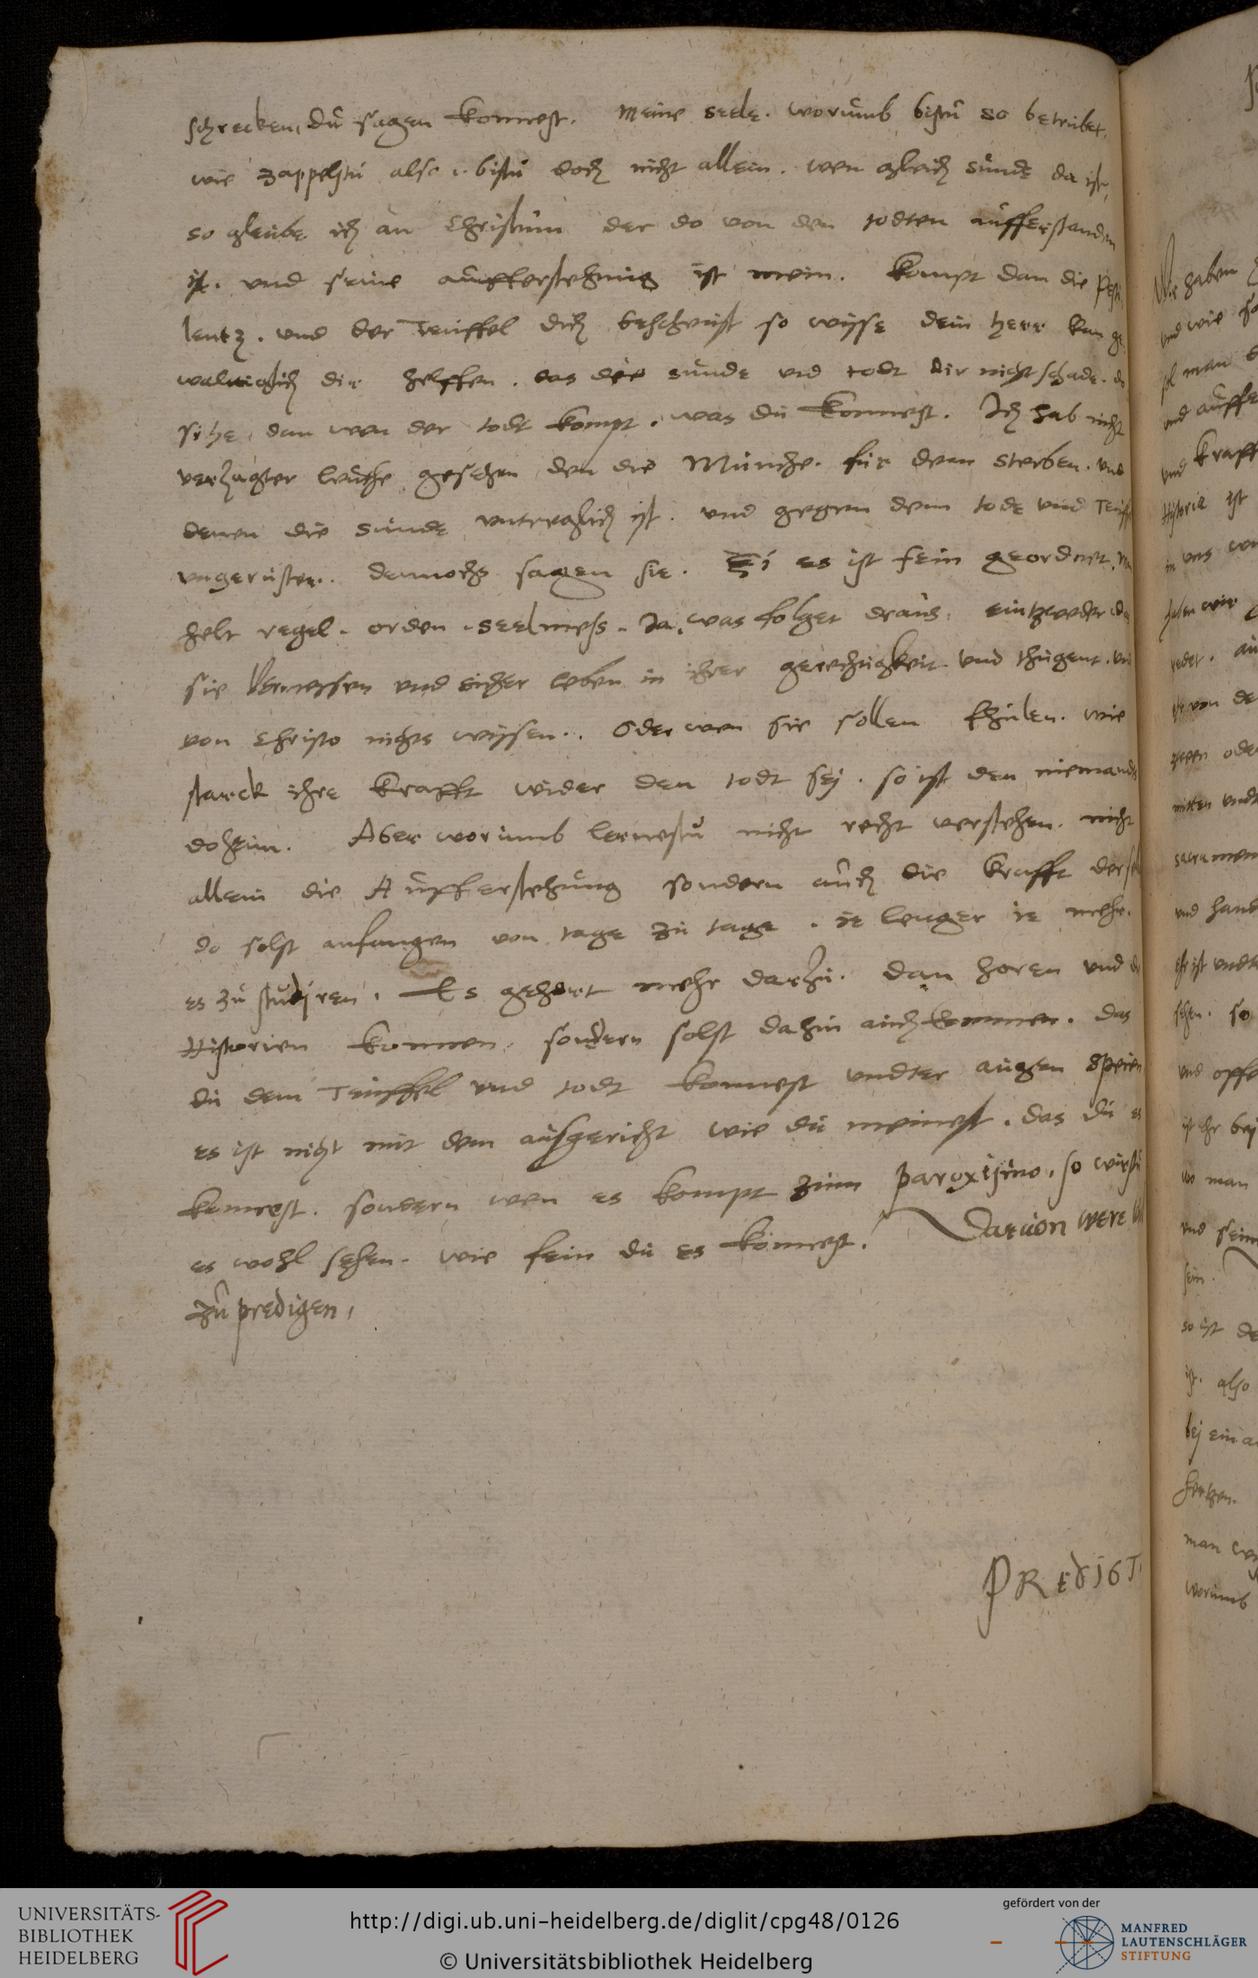 schrecken, du sagen konnest. Meine seele. worumb bistu so betrubet.
wie zappelstu also. bistu doch nicht allein. wen gleich sunde da ist,
so gleube ich an Christum der do von den todten aufferstanden
ist. vnd seine aufferstehung ist mein. kompt dan die Pesti
lentz. vnd der Teuffel dich bescheist so wisse dein herr kan ge
waltiglich dir helffen. das die sunde vnd todt dir nicht schade. do
sihe dan wen der todt kompt. was du konnest. Ich hab nicht
verzagter leuthe gesehen den die Munche. fur dem sterben. vnd
denen die sunde vntreglich ist. vnd gegen dem tode vnd Teuff
vngerustet. dennochs sagen sie. Ei es ist fein geordnet.
helt regel. orden. seelmess. Ja. was folget draus. eintzweder das
sie Vermessen vnd sicher leben in ihrer gerechtigkeit vnd thugent. vnd
von Christo nichts wissen. Oder wen sie sollen fhulen. wie
starck ihre krafft wider den todt sej. so ist den niemands
doheim. Aber worumb lernestu nicht recht verstehen. nicht
allein die Aufferstehung sondern auch die krafft dersel
do solst anfangen von tage zu tage. ie lenger ie mehr.
es zu studiren. Es gehort mehr darzu. dan horen vnd die
Historien konnen. sondern solst dahin auch kommen. das
du dem Teuffel vnd todt konnest vndter augen speien
es ist nicht mit dem ausgericht wie du meinest. das du es
konnest. sondern wen es kompt zum paroxismo. so wirstu
es wohl sehen. wie fein du es konnest. Daruon were
zu predigen.
PREDIGT
Wir haben
vnd wie
sol man
vnd auffe
vnd krafft
Historie ist
in vns
haben wir
redet. au
von de
oder
mitten vndt
sacramen
vnd hand
ehr ist vndt
sehen. so
vnd opffe
ist ehr bej
wo man
vnd sein
sein.
so ist de
ist. also
bej ein
hertzen.
man
worumb
UNIVERSITÄTS-
BIBLIOTHEK
HEIDELBERG
http://digi.ub.uni-heidelberg.de/diglit/cpg48/0126
© Universitätsbibliothek Heidelberg
gefördert von der
MANFRED
LAUTENSCHLÄGER
STIFTUNG